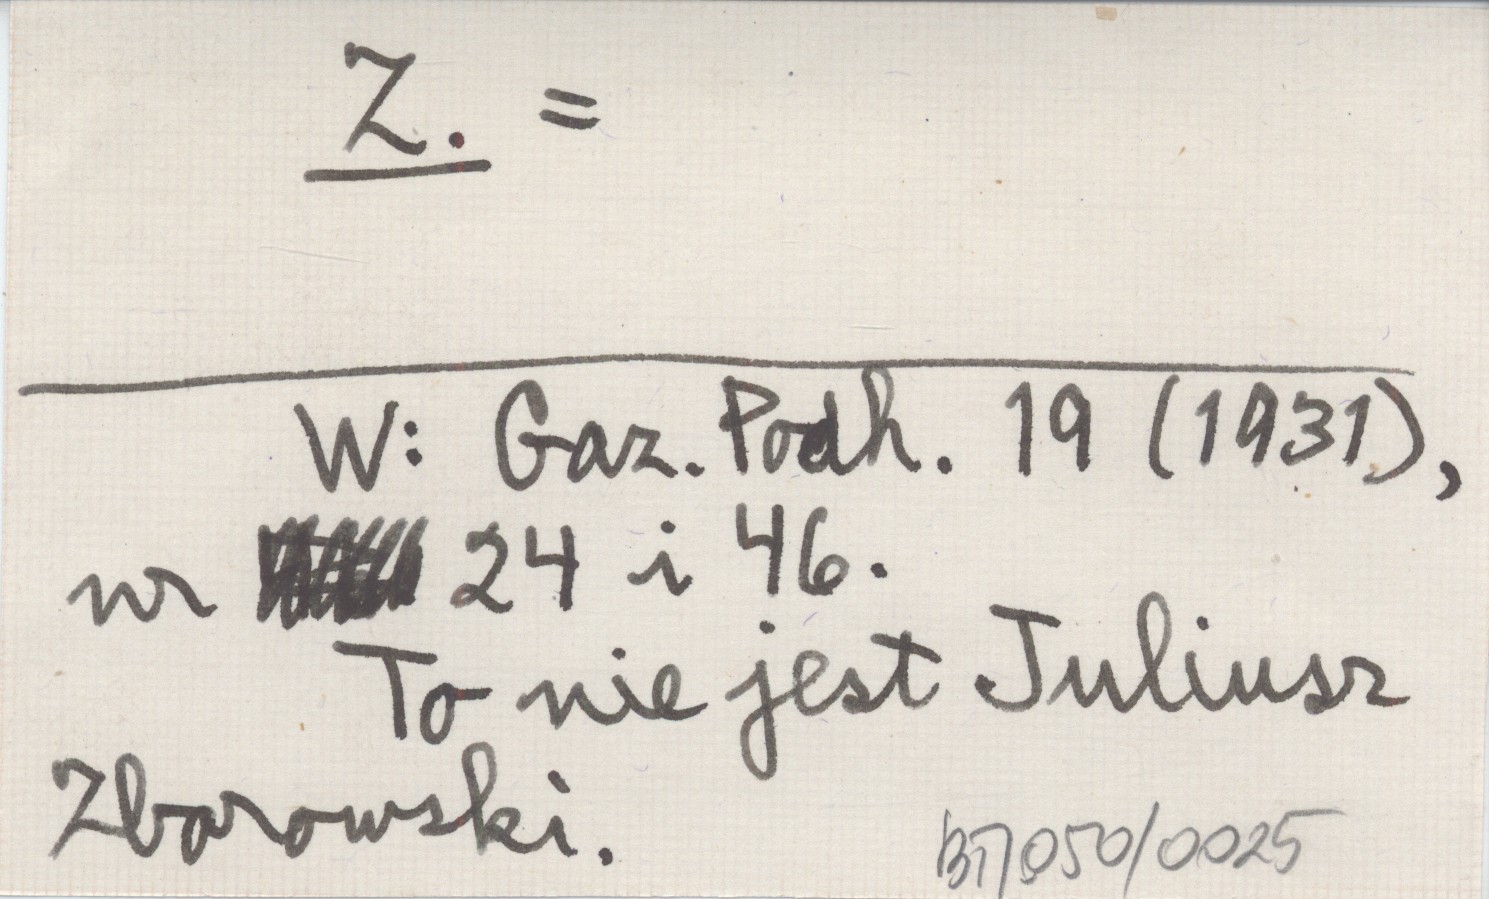 Z. =
W: Gaz. Podh. 19 (1931),
nr 24 i 46.
To nie jest Juliusz
Zborowski.
BT/050/0025